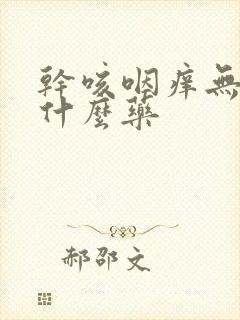 幹咳咽痒無
什麼藥
郝邵文